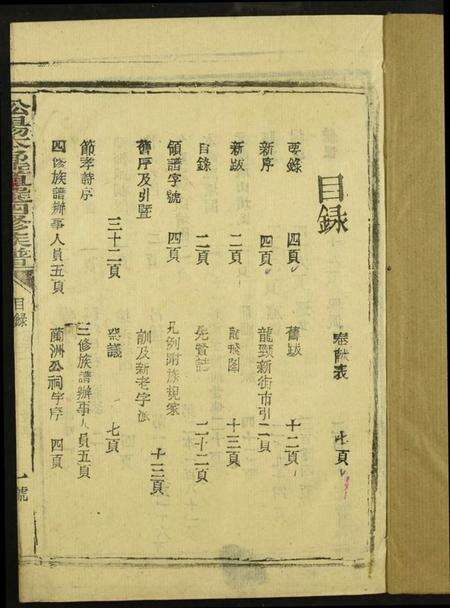 目錄
要錄 四頁
新序 四頁
新跋 二頁
目錄 二頁
領譜字號 四頁
舊序及引暨
三十二頁
節孝詩序
四修族譜辦事人員五頁
世獻表 七頁
舊跋 十二頁
龍頸新街市引二頁
龍飛圖 十三頁
先賢誌 二十二頁
凡例附族規家
訓及新老字派
十三頁
眾議 七頁
三修族譜辦事人員五頁
蘭洲公祠字序 四頁
四修族譜
目錄
一號